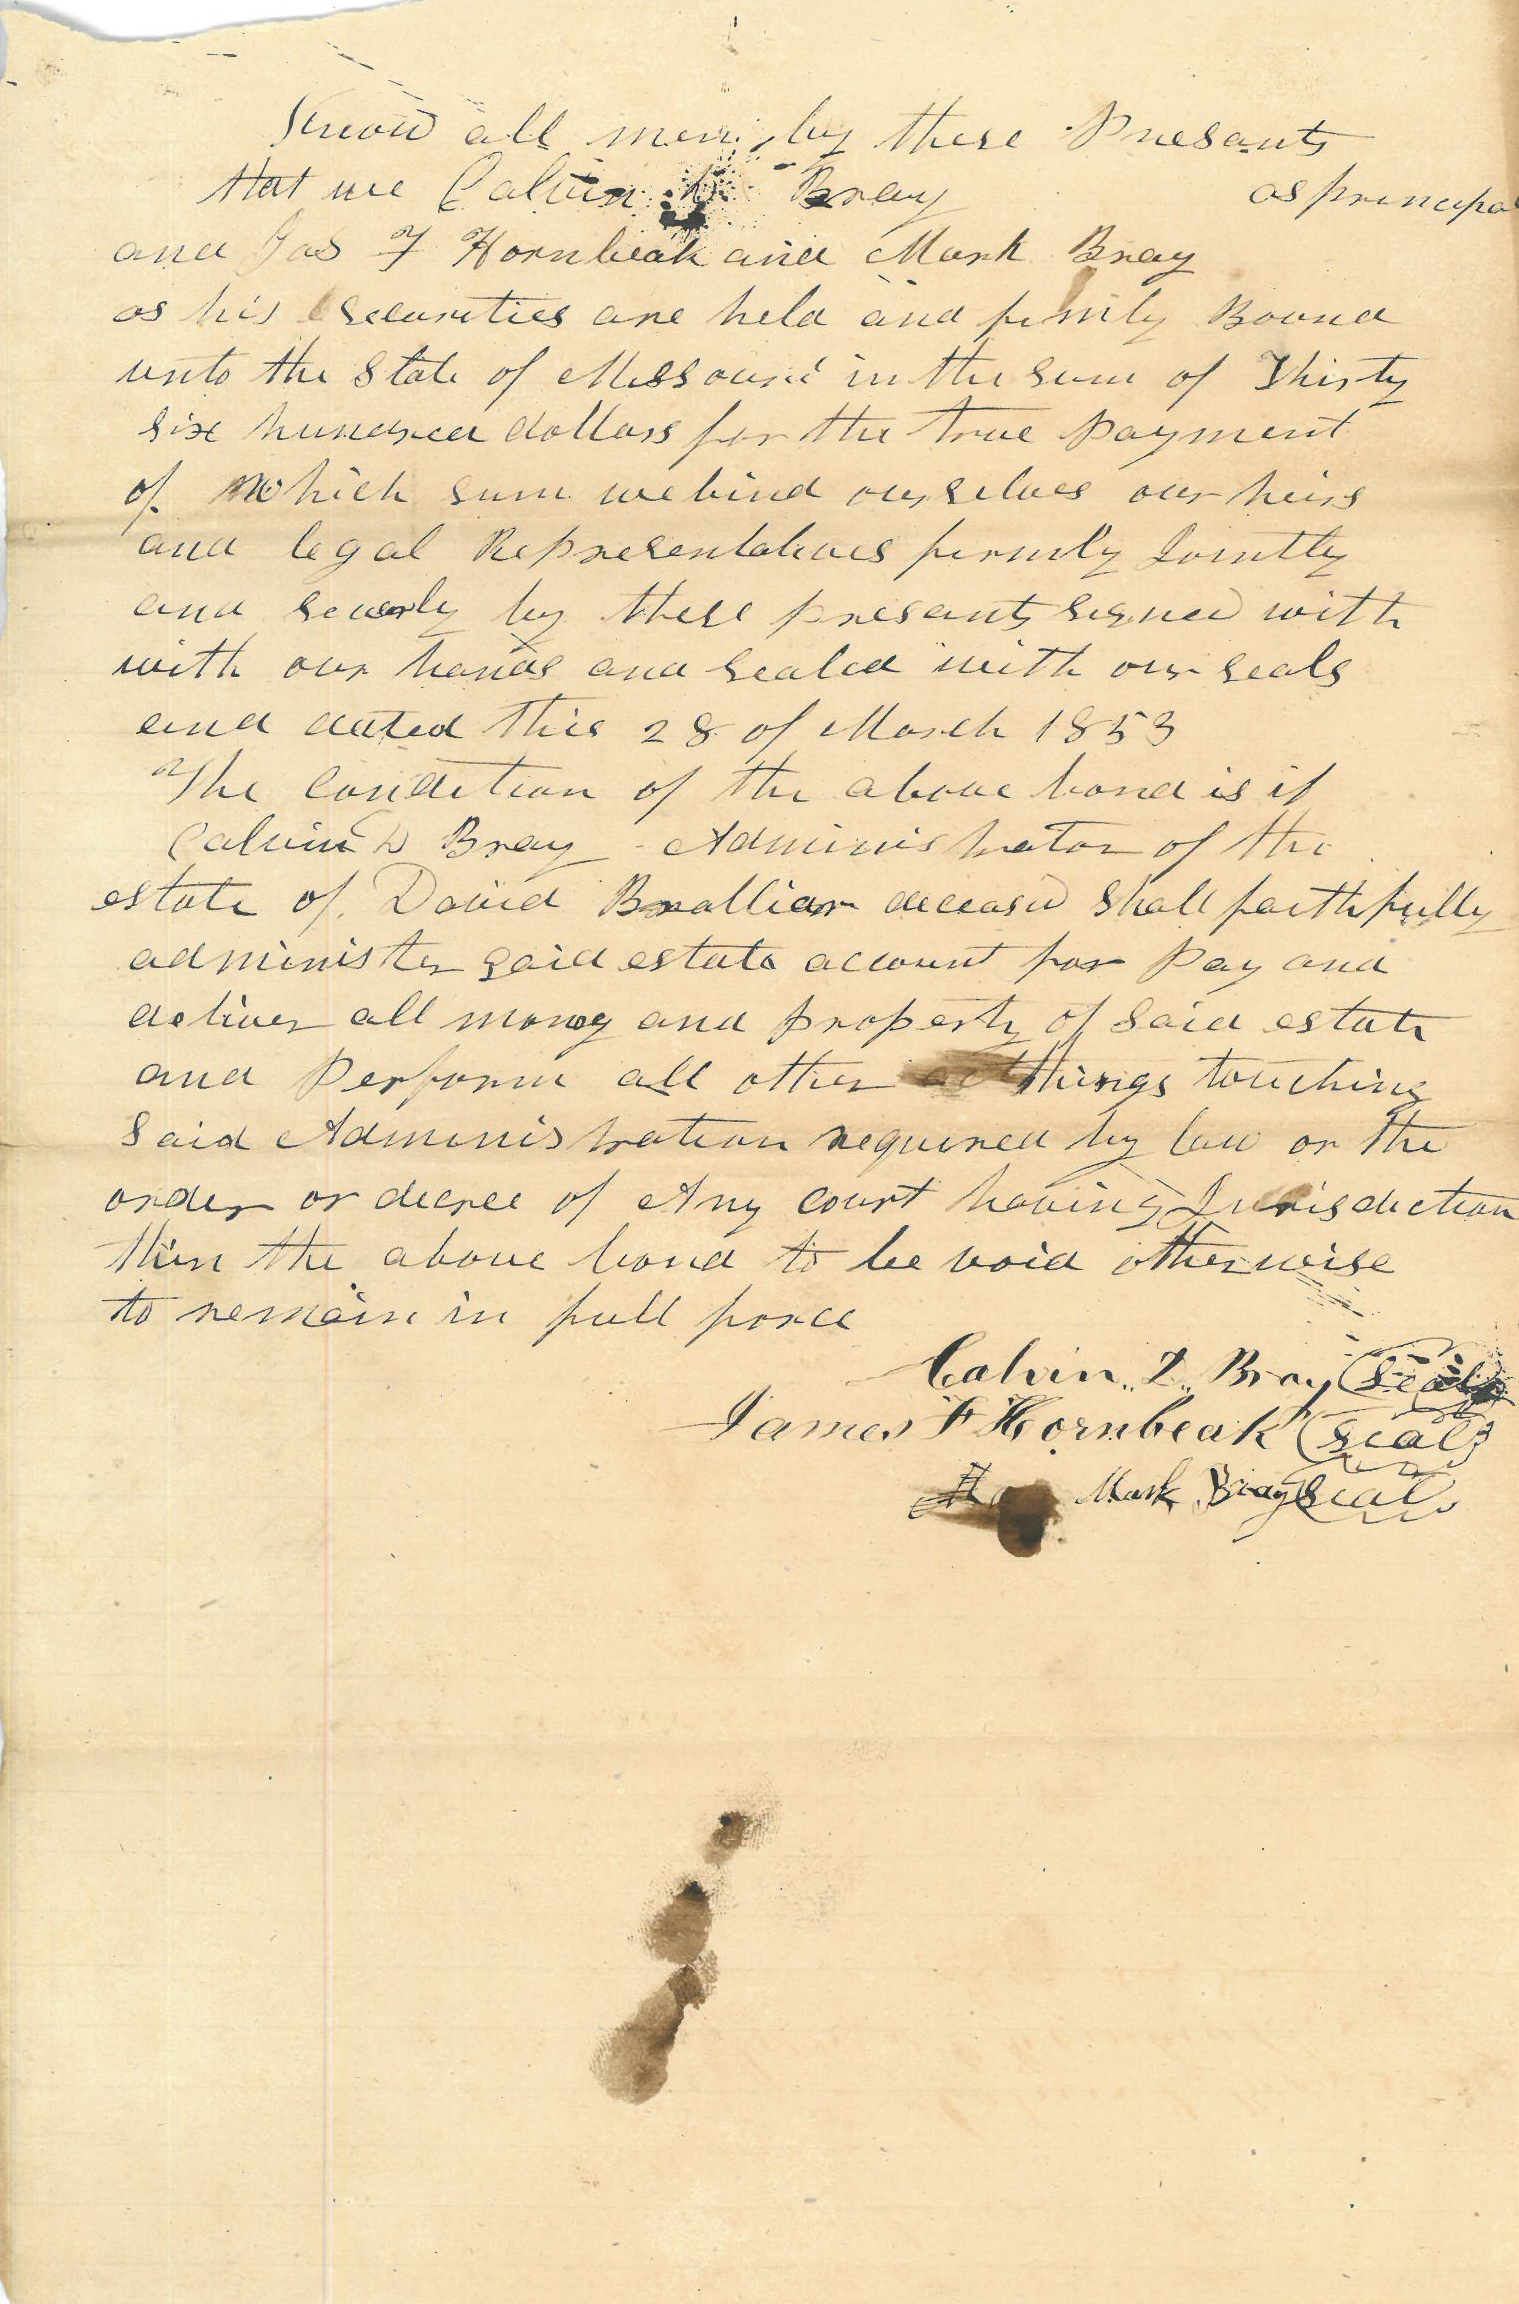 Know all men by these Presants
that we Calvin D Bray as principal
and Jas F Hornbeak and Mark Bray
as his securities are held and firmly Bound
unto the State of Missouri in the sum of Thirty
six hundred dollars for the true Payment
of which sum we bind ourselves our heirs
and legal Representatives firmly Jointly
and severly by these presants signed with
with our hands and sealed with our seals
and dated this 28 of March 1853
The condition of the above bond is if
Calvin D Bray Administrator of the
estate of David Brallier deceasd shall faithfully
administer said estate account for Pay and
deliver all money and property of said estate
and Perform all other things touching
said Administration required by law or the
order or decree of Any court having Jurisdiction
then the above bond to be void otherwise
to remain in full force
Calvin D Bray (seal)
James F Hornbeak (seal)
Mark Bray (seal)